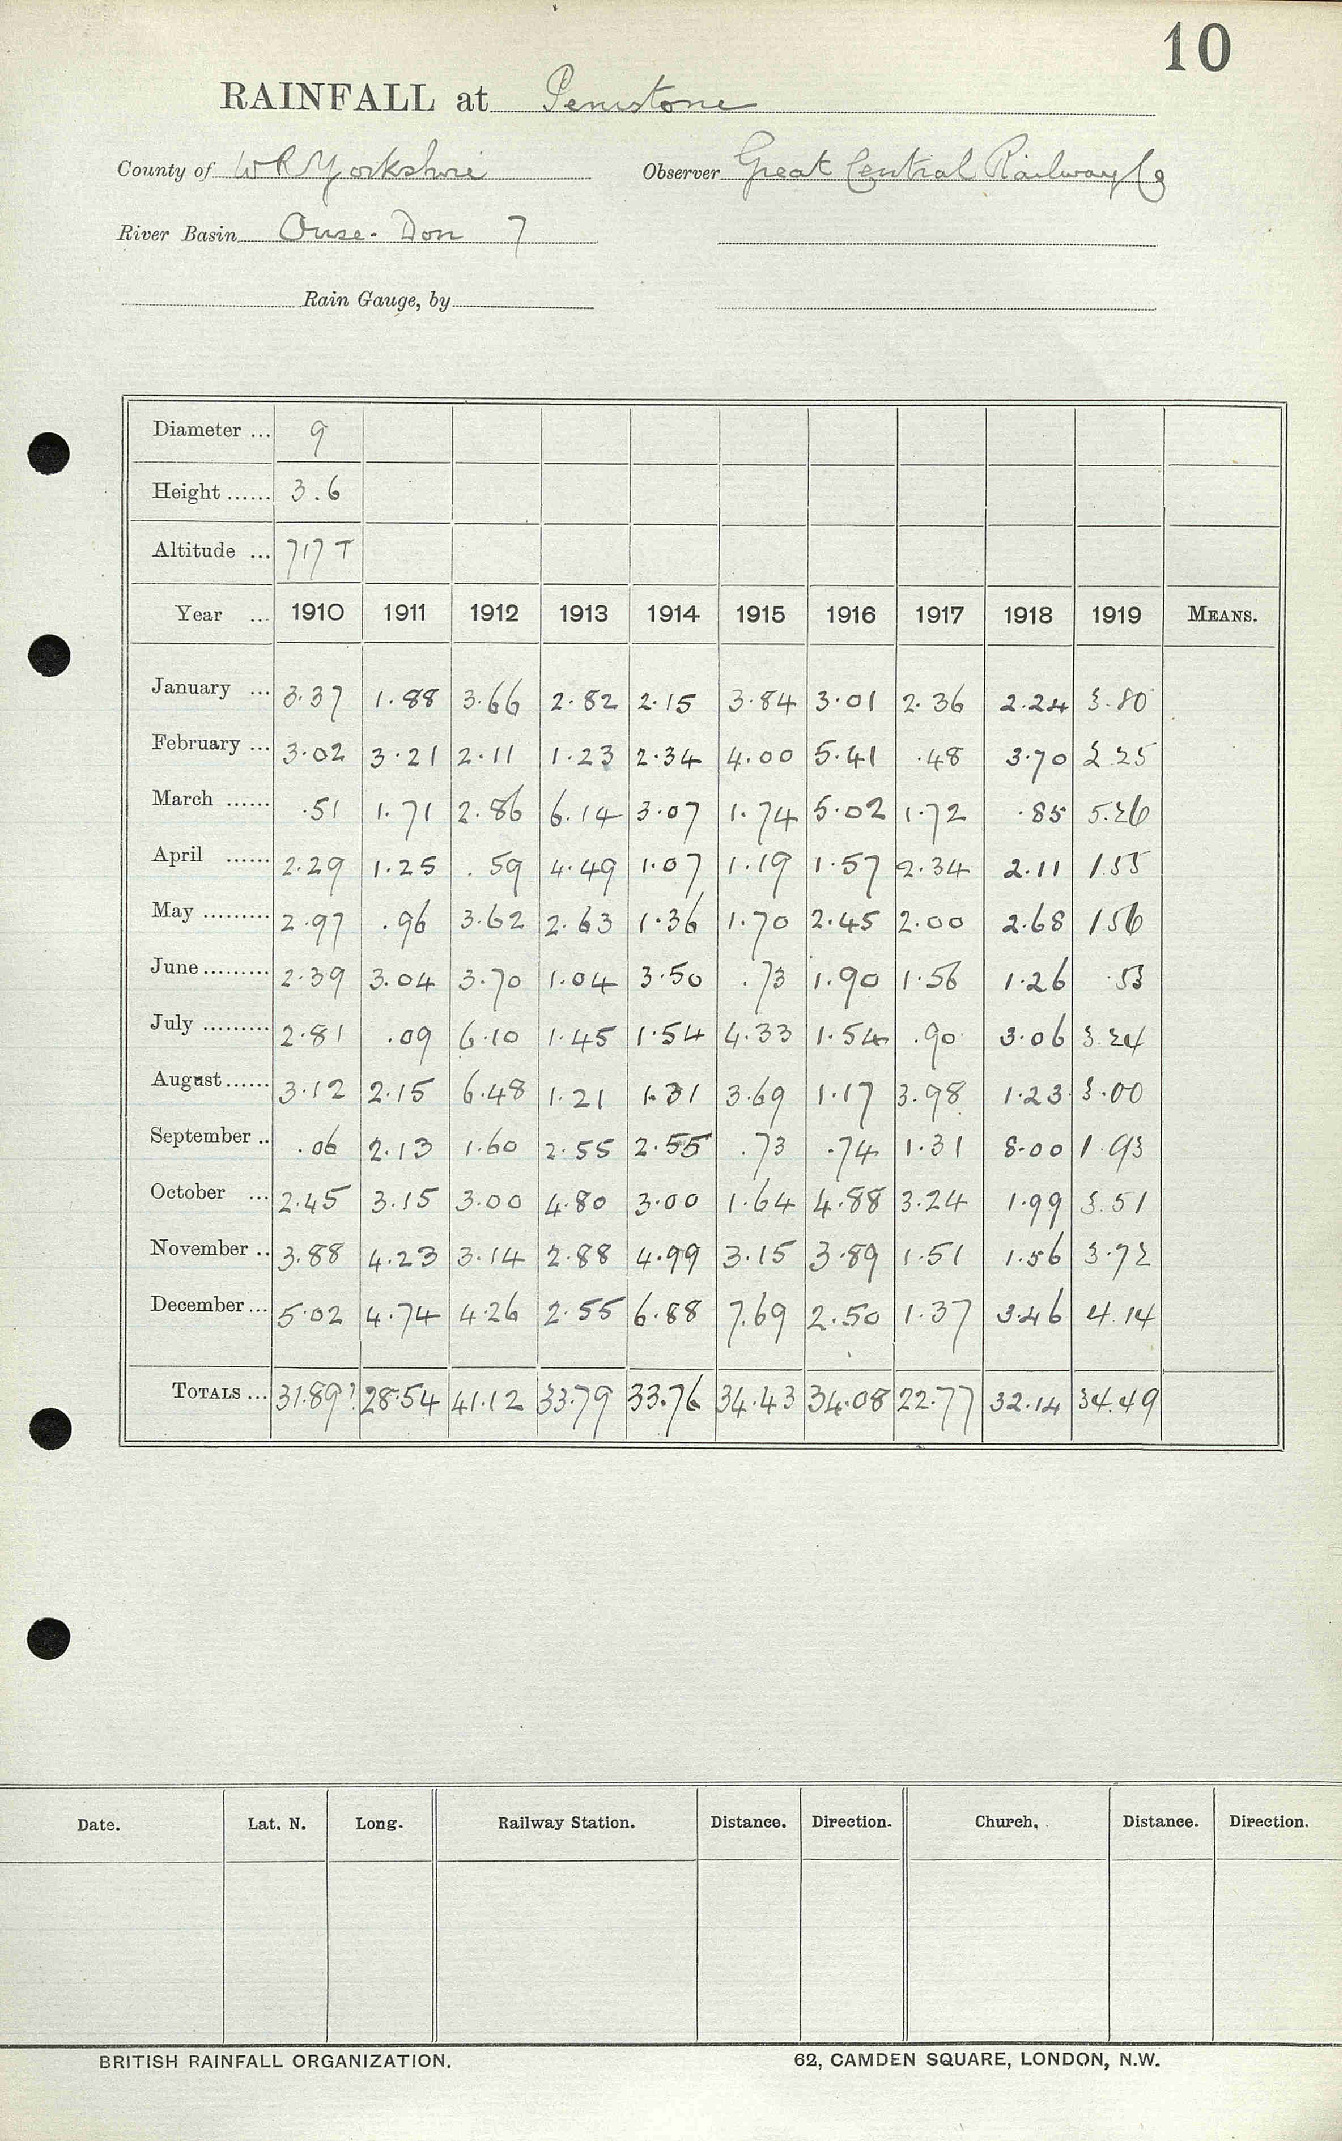 10
RAINFALL at Penistone
County of WR Yorkshire Observer Great Central Railway Co
River Basin Ouse. Don 7
Rain Gauge, by
Diameter ... 9
Height ...... 3.6
Altitude ... 717 T
Year ... 1910 1911 1912 1913 1914 1915 1916 1917 1918 1919 MEANS.
January ... 3.37 1.88 3.66 2.82 2.15 3.84 3.01 2.36 2.24 3.80
February ... 3.02 3.21 2.11 1.23 2.34 4.00 5.41 .48 3.70 2.25
March ...... .51 1.71 2.86 6.14 3.07 1.74 5.02 1.72 .85 5.26
April ...... 2.29 1.25 .59 4.49 1.07 1.19 1.57 2.34 2.11 1.55
May ......... 2.97 .96 3.62 2.63 1.36 1.70 2.45 2.00 2.68 1.56
June ......... 2.39 3.04 3.70 1.04 3.50 .73 1.90 1.56 1.26 .53
July ......... 2.81 .09 6.10 1.45 1.54 4.33 1.54 .90 3.06 3.24
August ...... 3.12 2.15 6.48 1.21 1.31 3.69 1.17 3.98 1.23 3.00
September .. .06 2.13 1.60 2.55 2.55 .73 .74 1.31 8.00 1.93
October ... 2.45 3.15 3.00 4.80 3.00 1.64 4.88 3.24 1.99 3.51
November .. 3.88 4.23 3.14 2.88 4.99 3.15 3.89 1.51 1.56 3.72
December ... 5.02 4.74 4.26 2.55 6.88 7.69 2.50 1.37 3.46 4.14
TOTALS ... 31.89? 28.54 41.12 33.79 33.76 34.43 34.08 22.77 32.14 34.49
Date. Lat. N. Long. Railway Station. Distance. Direction. Church. Distance. Direction.
BRITISH RAINFALL ORGANIZATION. 62, CAMDEN SQUARE, LONDON, N.W.